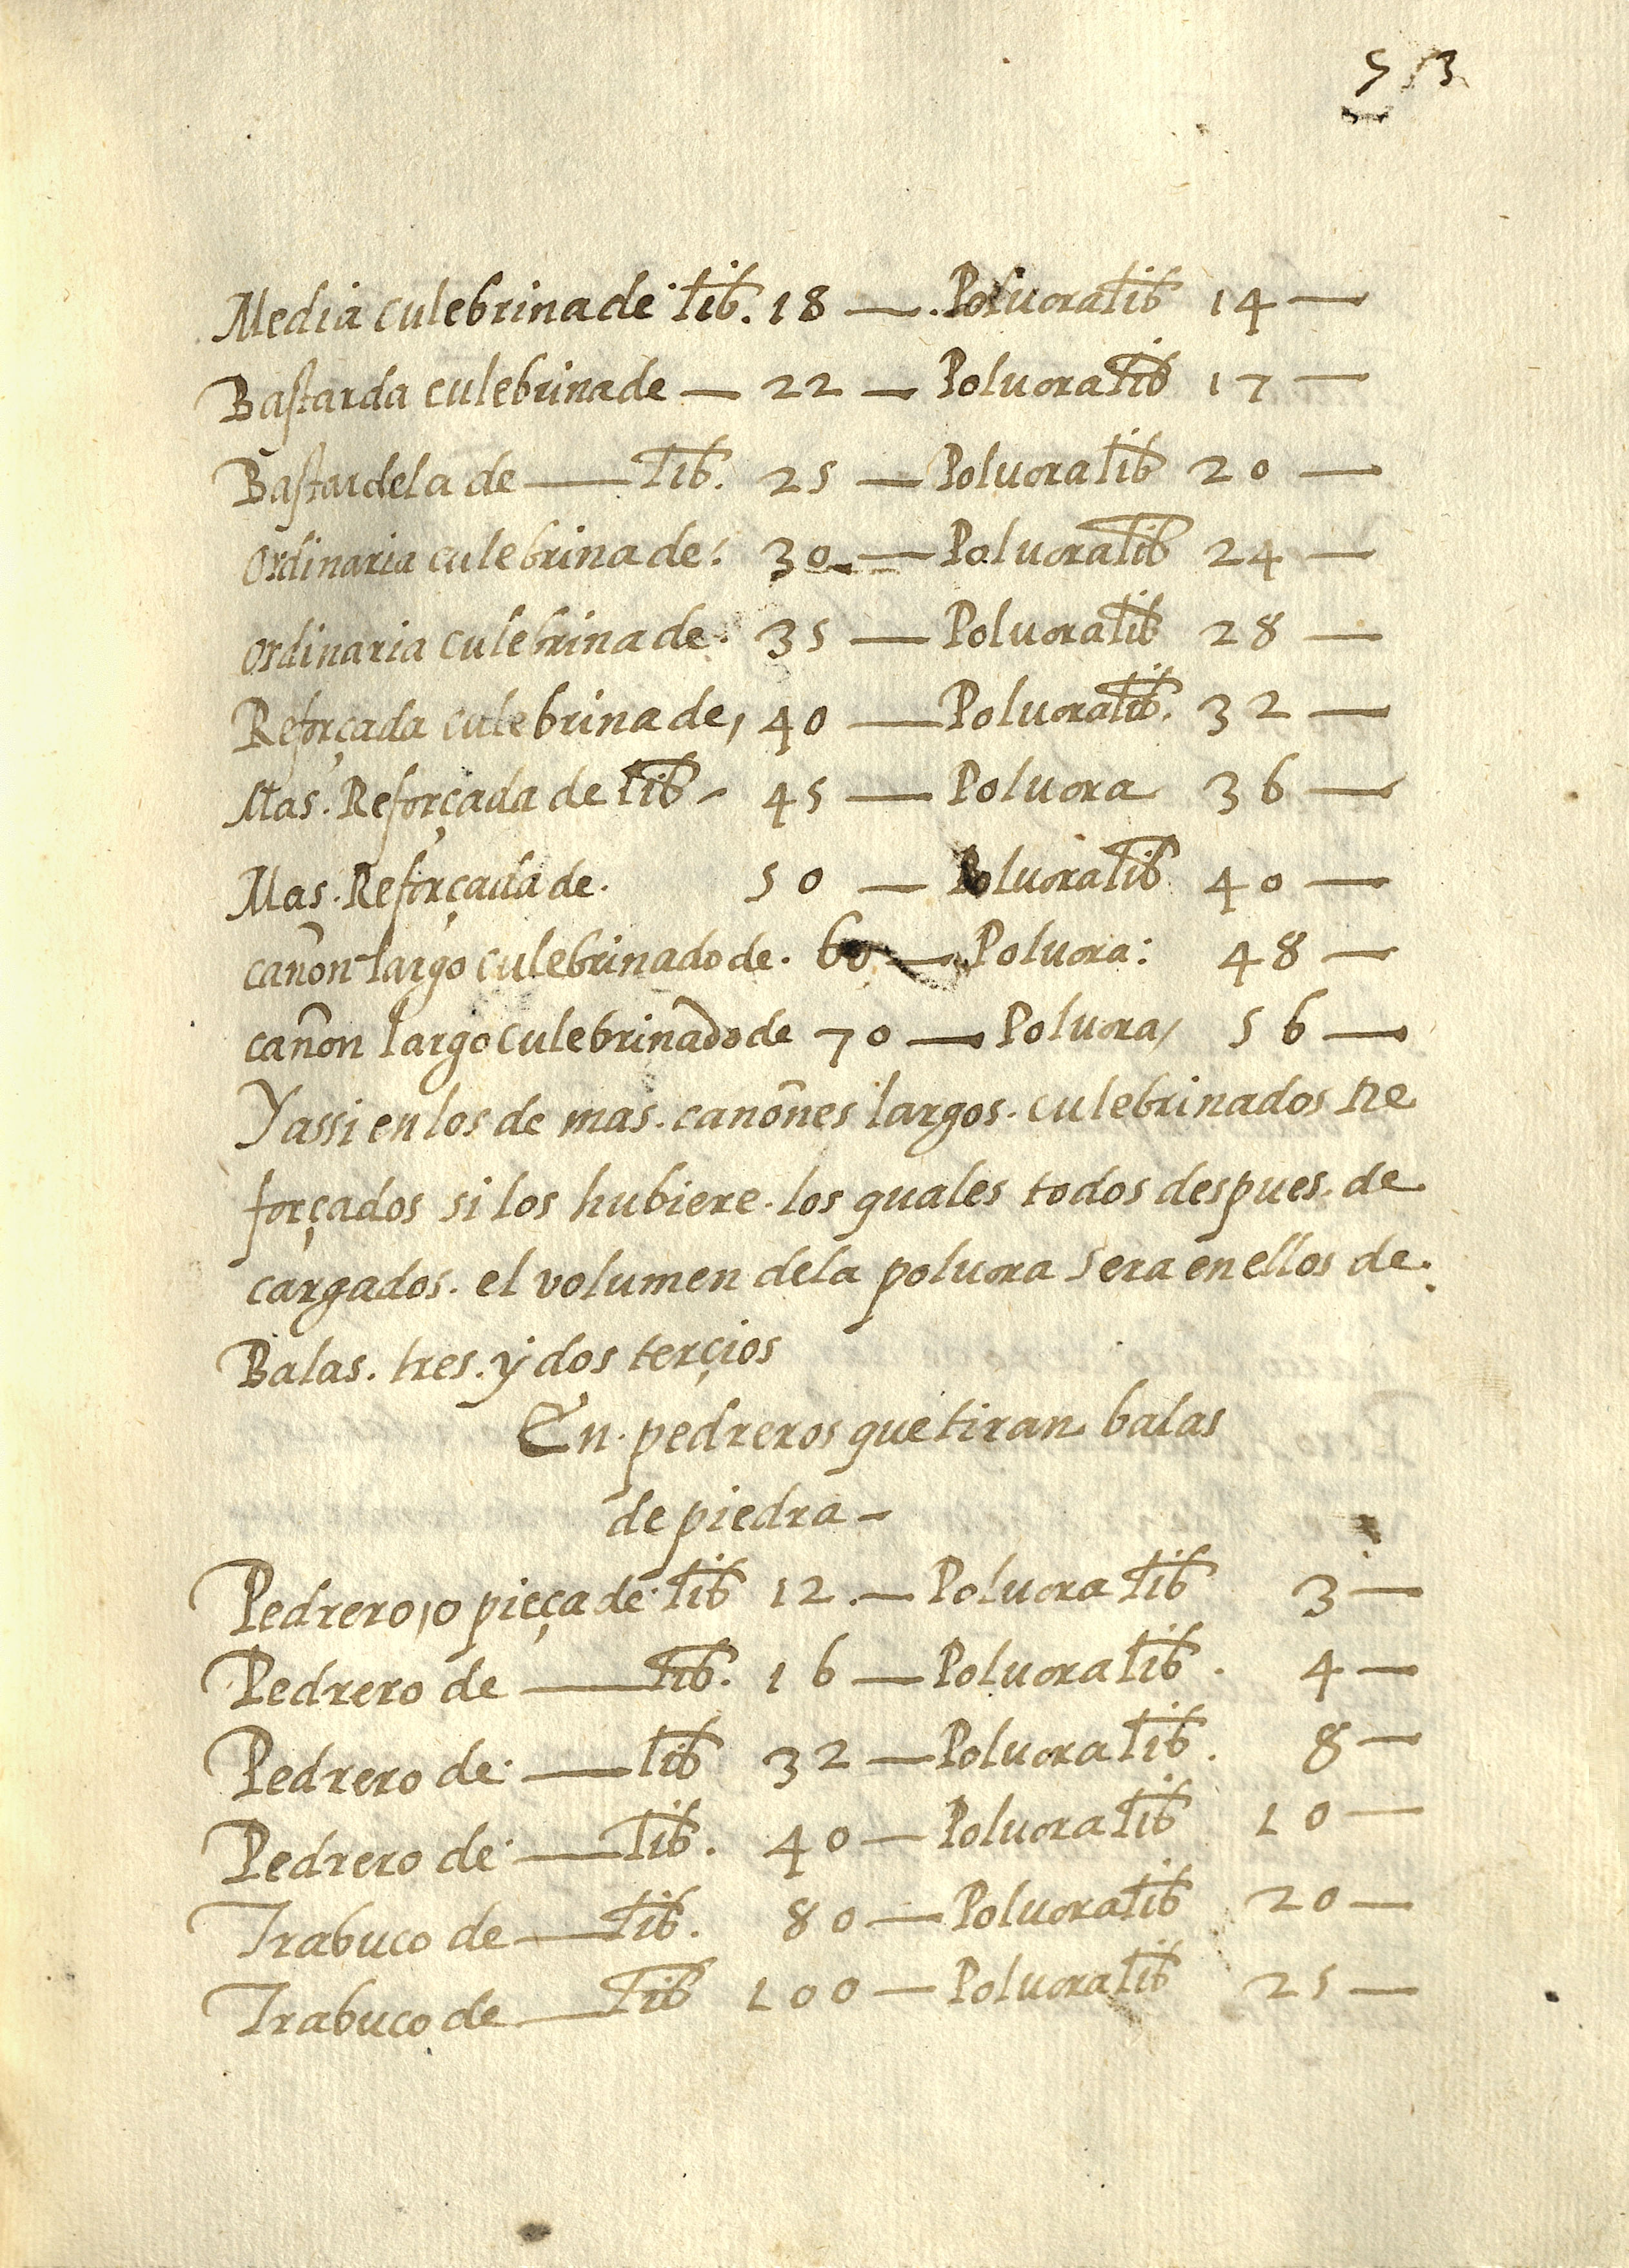 53
Media culebrina de lib. 18 — Poluora lib 14 —
Bastarda culebrina de — 22 — Poluora lib 17 —
Bastardela de — lib. 25 — Poluora lib 20 —
Ordinaria culebrina de. 30 — Poluora lib 24 —
Ordinaria culebrina de. 35 — Poluora lib 28 —
Reforçada culebrina de, 40 — Poluora lib. 32 —
Mas. Reforçada de lib — 45 — Poluora 36 —
Mas. Reforçada de. 50 — Poluora lib 40 —
cañon largo culebrinado de. 60 — Poluora: 48 —
cañon largo culebrinado de 70 — Poluora, 56 —
Y assi en los de mas. cañones largos. culebrinados Re
forçados si los hubiere. los quales todos despues. de
cargados. el volumen dela poluora sera en ellos de.
Balas. tres. y dos terçios
En. pedreros que tiran balas
de piedra —
Pedrero, o pieça de lib 12. — Poluora lib 3 —
Pedrero de — lib. 16 — Poluora lib. 4 —
Pedrero de — lib 32 — Poluora lib. 8 —
Pedrero de — lib. 40 — Poluora lib 10 —
Trabuco de — lib. 80 — Poluora lib 20 —
Trabuco de — lib 100 — Poluora lib 25 —